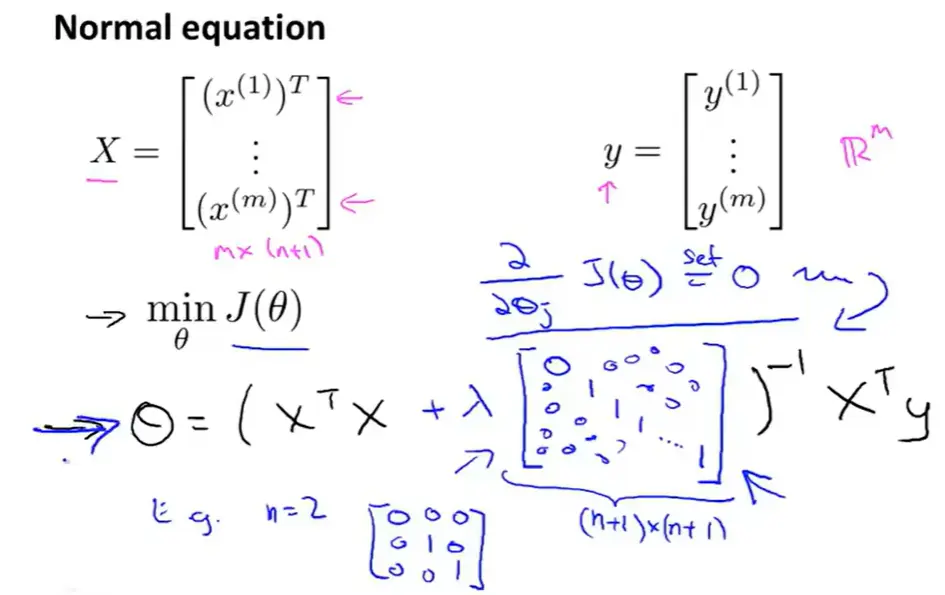 Normal equation
X = [ (x^(1))^T ⋮ (x^(m))^T ] ← ←
m x (n+1)
y = [ y^(1) ⋮ y^(m) ] ℝ^m
↑
∂/∂θ_j J(θ) set= 0
→ min_θ J(θ)
→ θ = ( X^T X + λ [ 0 0 0 0 0 0 1 0 0 0 1 0 0 0 1 0 0 0 ⋯ 1 ] )^-1 X^T y
(n+1)x(n+1)
E.g. n=2 [ 0 0 0
0 1 0
0 0 1 ]